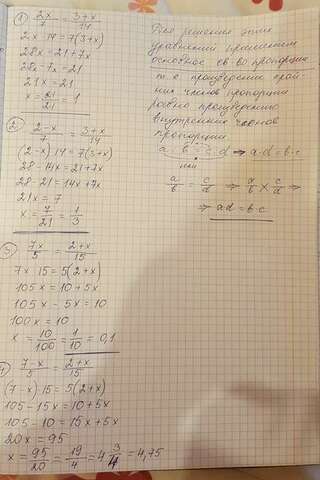 1) 2x/7 = 3+x/14
2x·14 = 7(3+x)
28x = 21+7x
28x-7x = 21
21x = 21
x = 21/21 = 1
2) 2-x/7 = 3+x/14
(2-x)·14 = 7(3+x)
28-14x = 21+7x
28-21 = 14x+7x
21x = 7
x = 7/21 = 1/3
3) 7x/5 = 2+x/15
7x·15 = 5(2+x)
105x = 10+5x
105x-5x = 10
100x = 10
x = 10/100 = 1/10 = 0,1
4) 7-x/5 = 2+x/15
(7-x)·15 = 5(2+x)
105-15x = 10+5x
105-10 = 15x+5x
20x = 95
x = 95/20 = 19/4 = 4 3/4 = 4,75
Для решения этих
уравнений применяем
основное св-во пропорции
т.е произведение край-
них членов пропорции
равно произведению
внутренних членов
пропорции
a:b = c:d ⇒ a·d = b·c
или
a/b = c/d ⇒ a/b × c/d ⇒
⇒ ad = b·c